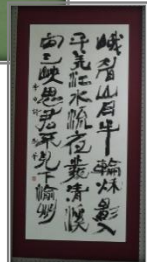 峨眉山月半輪秋影入
平羌江水流夜發清溪
向三峽思君不見下渝州